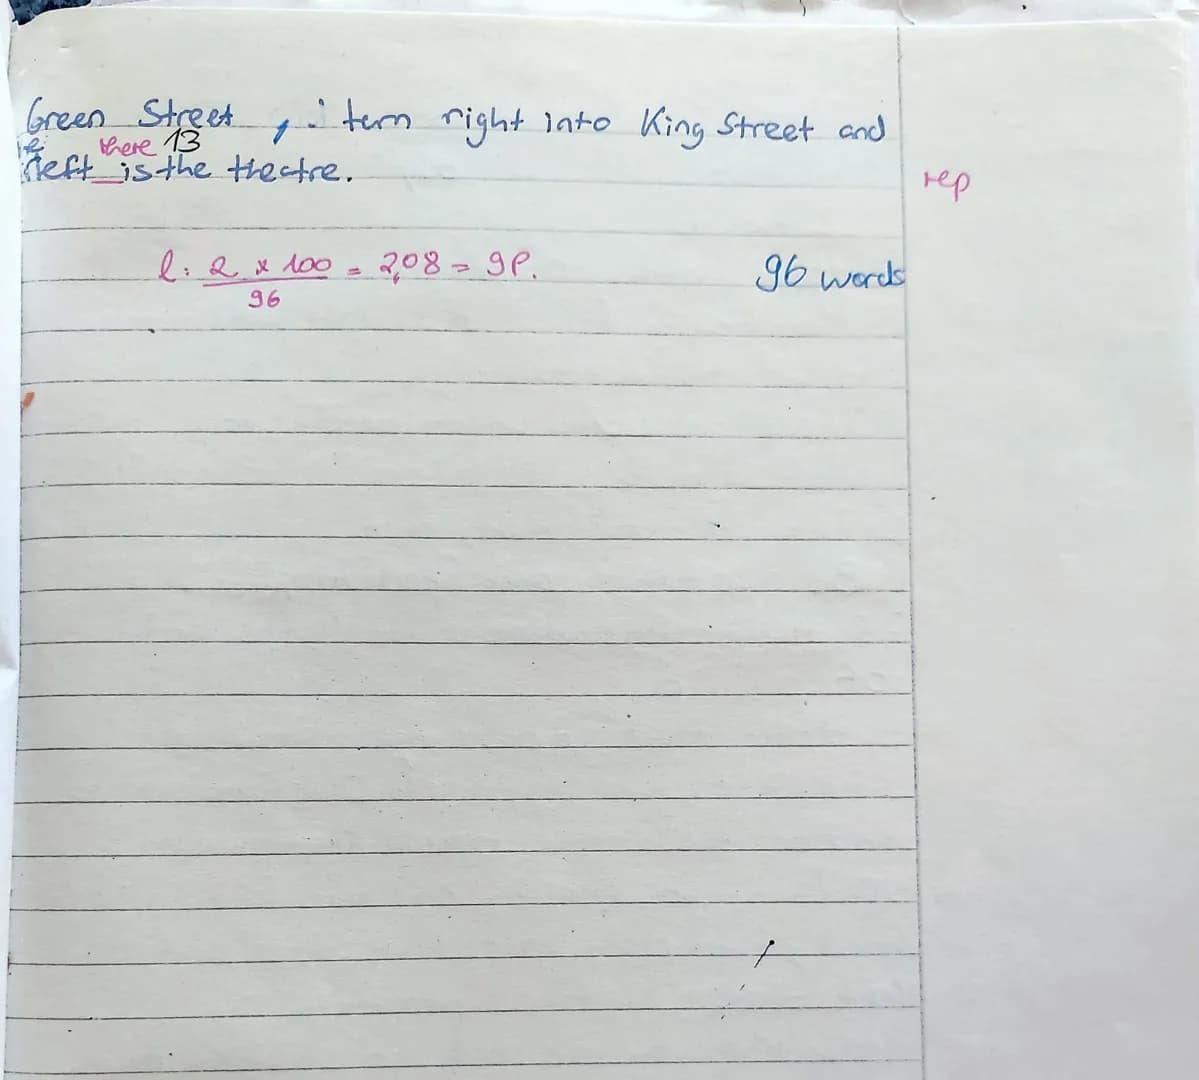 Green Street, i turn right into King Street and
there 13
left is the theatre.
rep
l: 2 x 100 / 96 = 2,08 = 9P.
96 words